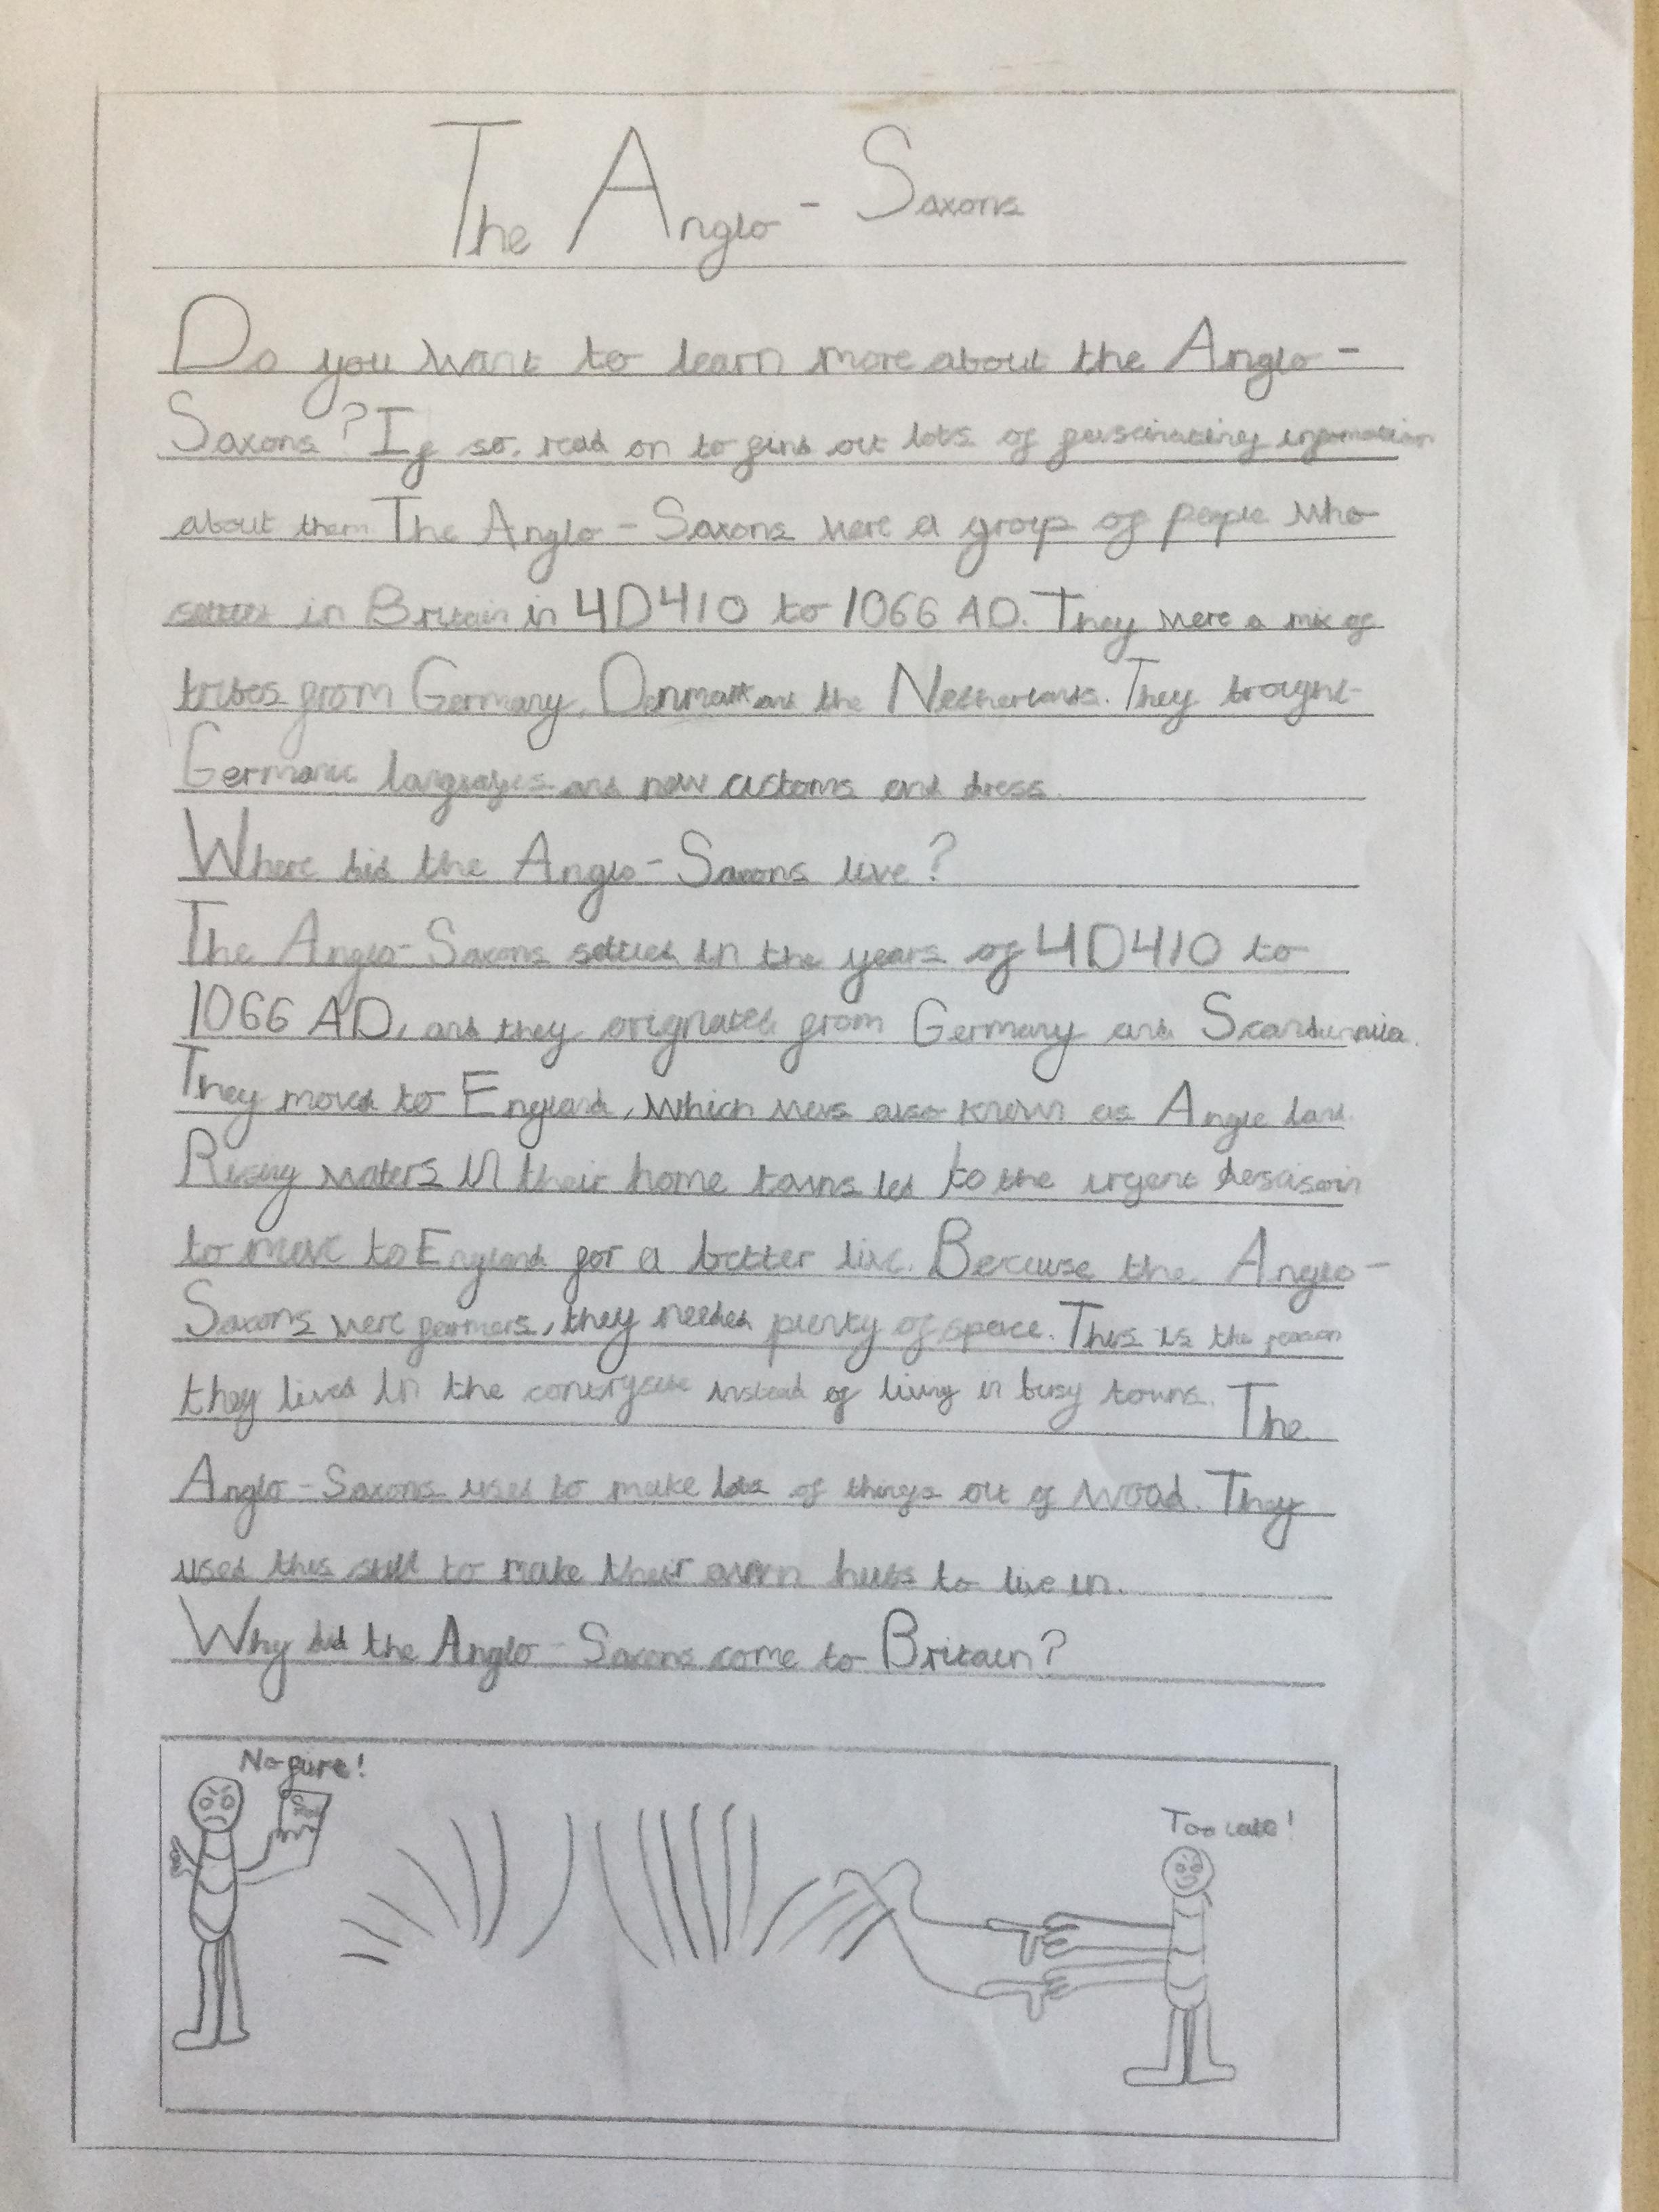 The Anglo - Saxons
Do you want to learn more about the Anglo -
Saxons? If so, read on to find out lots of fascinating information
about them. The Anglo - Saxons were a group of people who
settled in Britain in 4D410 to 1066 AD. They were a mix of
tribes from Germany, Denmark and the Netherlands. They brought
Germanic languages and new customs and dress.
Where did the Anglo - Saxons live?
The Anglo - Saxons settled in the years of 4D410 to
1066 AD, and they originated from Germany and
They moved to England, which was also known as Angle land.
Rising waters in their home towns led to the urgent
to move to England for a better live. Because the Anglo -
Saxons were farmers, they needed plenty of space. This is the reason
they lived in the instead of living in busy towns. The
Anglo - Saxons used to make lots of things out of wood. They
used this skill to make their own huts to live in.
Why did the Anglo - Saxons come to Britain?
No fire!
Too late!